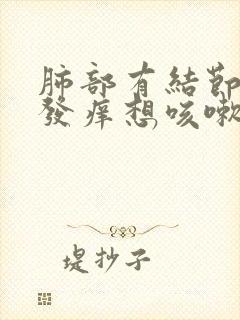 肺部有結節
發癢想咳嗽
堤抄子